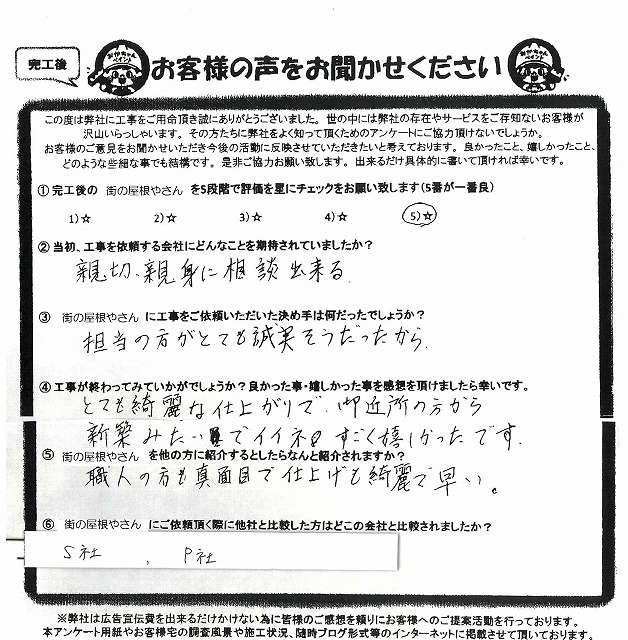 完工後
おやちゃんペイント
お客様の声をお聞かせください
おやちゃんペイント
この度は弊社に工事をご用命頂き誠にありがとうございました。世の中には弊社の存在やサービスをご存知ないお客様が
沢山いらっしゃいます。その方たちに弊社をよく知って頂くためのアンケートにご協力頂けないでしょうか。
お客様のご意見をお聞かせいただき今後の活動に反映させていただきたいと考えております。良かったこと、嬉しかったこと、
どのような些細な事でも結構です。是非ご協力お願い致します。出来るだけ具体的に書いて頂ければ幸いです。
①完工後の 街の屋根やさん を5段階で評価を星にチェックをお願い致します(5番が一番良)
1)☆ 2)☆ 3)☆ 4)☆ 5)☆
②当初、工事を依頼する会社にどんなことを期待されていましたか?
親切、親身に相談出来る
③ 街の屋根やさん に工事をご依頼いただいた決め手は何だったでしょうか?
担当の方がとても誠実そうだったから.
④工事が終わってみていかがでしょうか?良かった事・嬉しかった事を感想を頂けましたら幸いです。
とても綺麗な仕上がりで、御近所の方から
新築みたいでイイネ すごく嬉しかったです.
⑤ 街の屋根やさん を他の方に紹介するとしたらなんと紹介されますか?
職人の方も真面目で仕上げも綺麗で早い。
⑥ 街の屋根やさん にご依頼頂く際に他社と比較した方はどこの会社と比較されましたか?
S社 、 P社
※弊社は広告宣伝費を出来るだけかけない為に皆様のご感想を頼りにお客様へのご提案活動を行っております。
本アンケート用紙やお客様宅の調査風景や施工状況、随時ブログ形式等のインターネットに掲載させて頂いております。